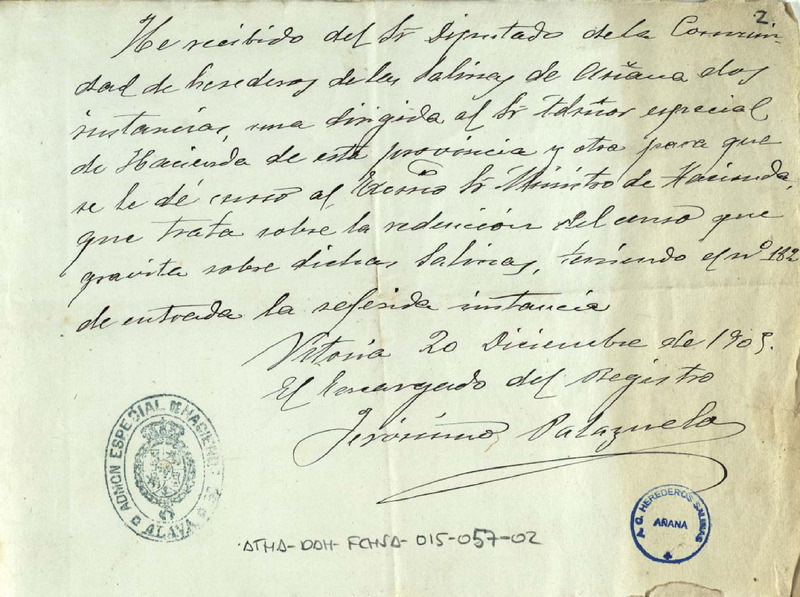 2.
He recibido del Sr Diputado de la Comuni-
dad de herederos de las Salinas de Añana dos
instancias, una dirigida al Sr Admor especial
de Hacienda de esta provincia y otra para que
se le dé curso al Excmo Sr Ministro de Hacienda,
que trata sobre la redención del censo que
gravita sobre dichas Salinas, teniendo el nº 182
de entrada la referida instancia
Vitoria 20 Diciembre de 1905.
El Encargado del Registro
Jerónimo Palazuelo
ADMON ESPECIAL DE HACIENDA
ALAVA
A.C. HEREDEROS SALINAS
AÑANA
ATHA-DAH-FCHSA-015-057-02